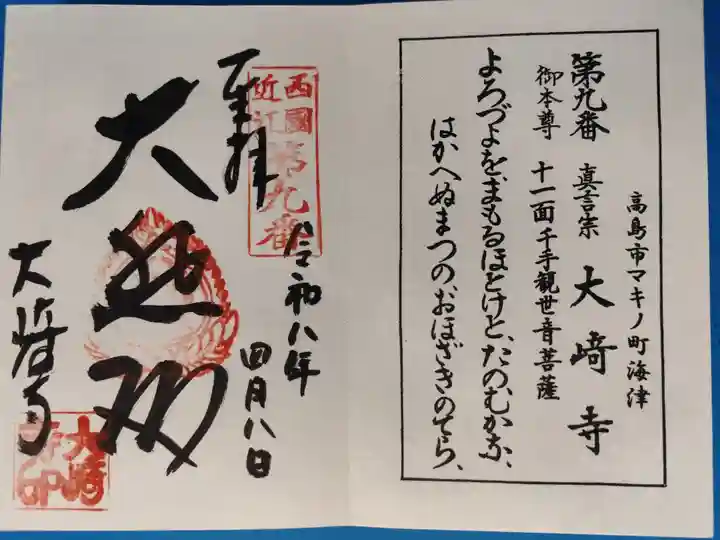 高島市マキノ町海津
第九番 真言宗 大﨑寺
御本尊 十一面千手観世音菩薩
よろづよを、まもるほとけと、たのむかな、
はかへぬまつの、おほざきのてら、
奉拝
西國
近江
第九番
令和八年
四月八日
大悲閣
大﨑寺
大﨑
寺印